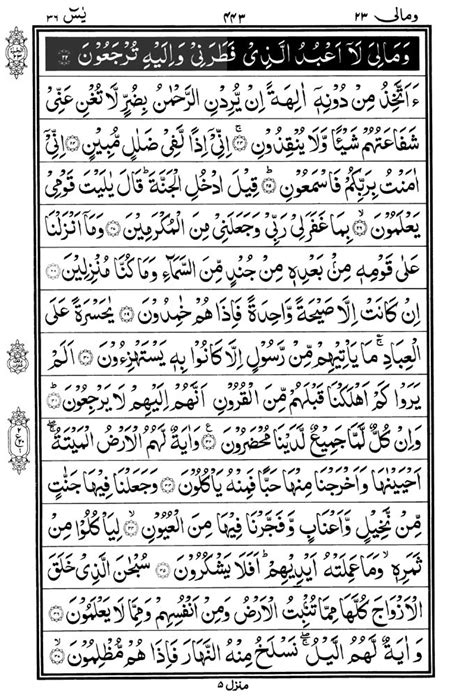 وَمَالِیَ ٢٣ ٤٤٣ یٰسٓ ٣٦
وَمَالِیَ لَاۤ اَعْبُدُ الَّذِیْ فَطَرَنِیْ وَاِلَیْهِ تُرْجَعُوْنَ ﴿٢٢﴾
ءَاَتَّخِذُ مِنْ دُوْنِهٖۤ اٰلِهَةً اِنْ یُّرِدْنِ الرَّحْمٰنُ بِضُرٍّ لَّا تُغْنِ عَنِّیْ
شَفَاعَتُهُمْ شَیْـًٔا وَّلَا یُنْقِذُوْنِ ﴿٢٣﴾ اِنِّیْۤ اِذًا لَّفِیْ ضَلٰلٍ مُّبِیْنٍ ﴿٢٤﴾ اِنِّیْۤ
اٰمَنْتُ بِرَبِّكُمْ فَاسْمَعُوْنِ ﴿٢٥﴾ قِیْلَ ادْخُلِ الْجَنَّةَ ؕ قَالَ یٰلَیْتَ قَوْمِیْ
یَعْلَمُوْنَ ﴿٢٦﴾ بِمَا غَفَرَلِیْ رَبِّیْ وَجَعَلَنِیْ مِنَ الْمُكْرَمِیْنَ ﴿٢٧﴾ وَمَاۤ اَنْزَلْنَا
عَلٰی قَوْمِهٖ مِنْۢ بَعْدِهٖ مِنْ جُنْدٍ مِّنَ السَّمَآءِ وَمَا كُنَّا مُنْزِلِیْنَ ﴿٢٨﴾
اِنْ كَانَتْ اِلَّا صَیْحَةً وَّاحِدَةً فَاِذَا هُمْ خٰمِدُوْنَ ﴿٢٩﴾ یٰحَسْرَةً عَلَی
الْعِبَادِ ۚ مَا یَاْتِیْهِمْ مِّنْ رَّسُوْلٍ اِلَّا كَانُوْا بِهٖ یَسْتَهْزِءُوْنَ ﴿٣٠﴾ اَلَمْ
یَرَوْا كَمْ اَهْلَكْنَا قَبْلَهُمْ مِّنَ الْقُرُوْنِ اَنَّهُمْ اِلَیْهِمْ لَا یَرْجِعُوْنَ ﴿٣١﴾
وَاِنْ كُلٌّ لَّمَّا جَمِیْعٌ لَّدَیْنَا مُحْضَرُوْنَ ﴿٣٢﴾ وَاٰیَةٌ لَّهُمُ الْاَرْضُ الْمَیْتَةُ ۖۚ
اَحْیَیْنٰهَا وَاَخْرَجْنَا مِنْهَا حَبًّا فَمِنْهُ یَاْكُلُوْنَ ﴿٣٣﴾ وَجَعَلْنَا فِیْهَا جَنّٰتٍ
مِّنْ نَّخِیْلٍ وَّاَعْنَابٍ وَّفَجَّرْنَا فِیْهَا مِنَ الْعُیُوْنِ ﴿٣٤﴾ لِیَاْكُلُوْا مِنْ
ثَمَرِهٖ ۙ وَمَا عَمِلَتْهُ اَیْدِیْهِمْ ؕ اَفَلَا یَشْكُرُوْنَ ﴿٣٥﴾ سُبْحٰنَ الَّذِیْ خَلَقَ
الْاَزْوَاجَ كُلَّهَا مِمَّا تُنْۢبِتُ الْاَرْضُ وَمِنْ اَنْفُسِهِمْ وَمِمَّا لَا یَعْلَمُوْنَ ﴿٣٦﴾
وَاٰیَةٌ لَّهُمُ الَّیْلُ ۖۚ نَسْلَخُ مِنْهُ النَّهَارَ فَاِذَا هُمْ مُّظْلِمُوْنَ ﴿٣٧﴾
منزل ٥